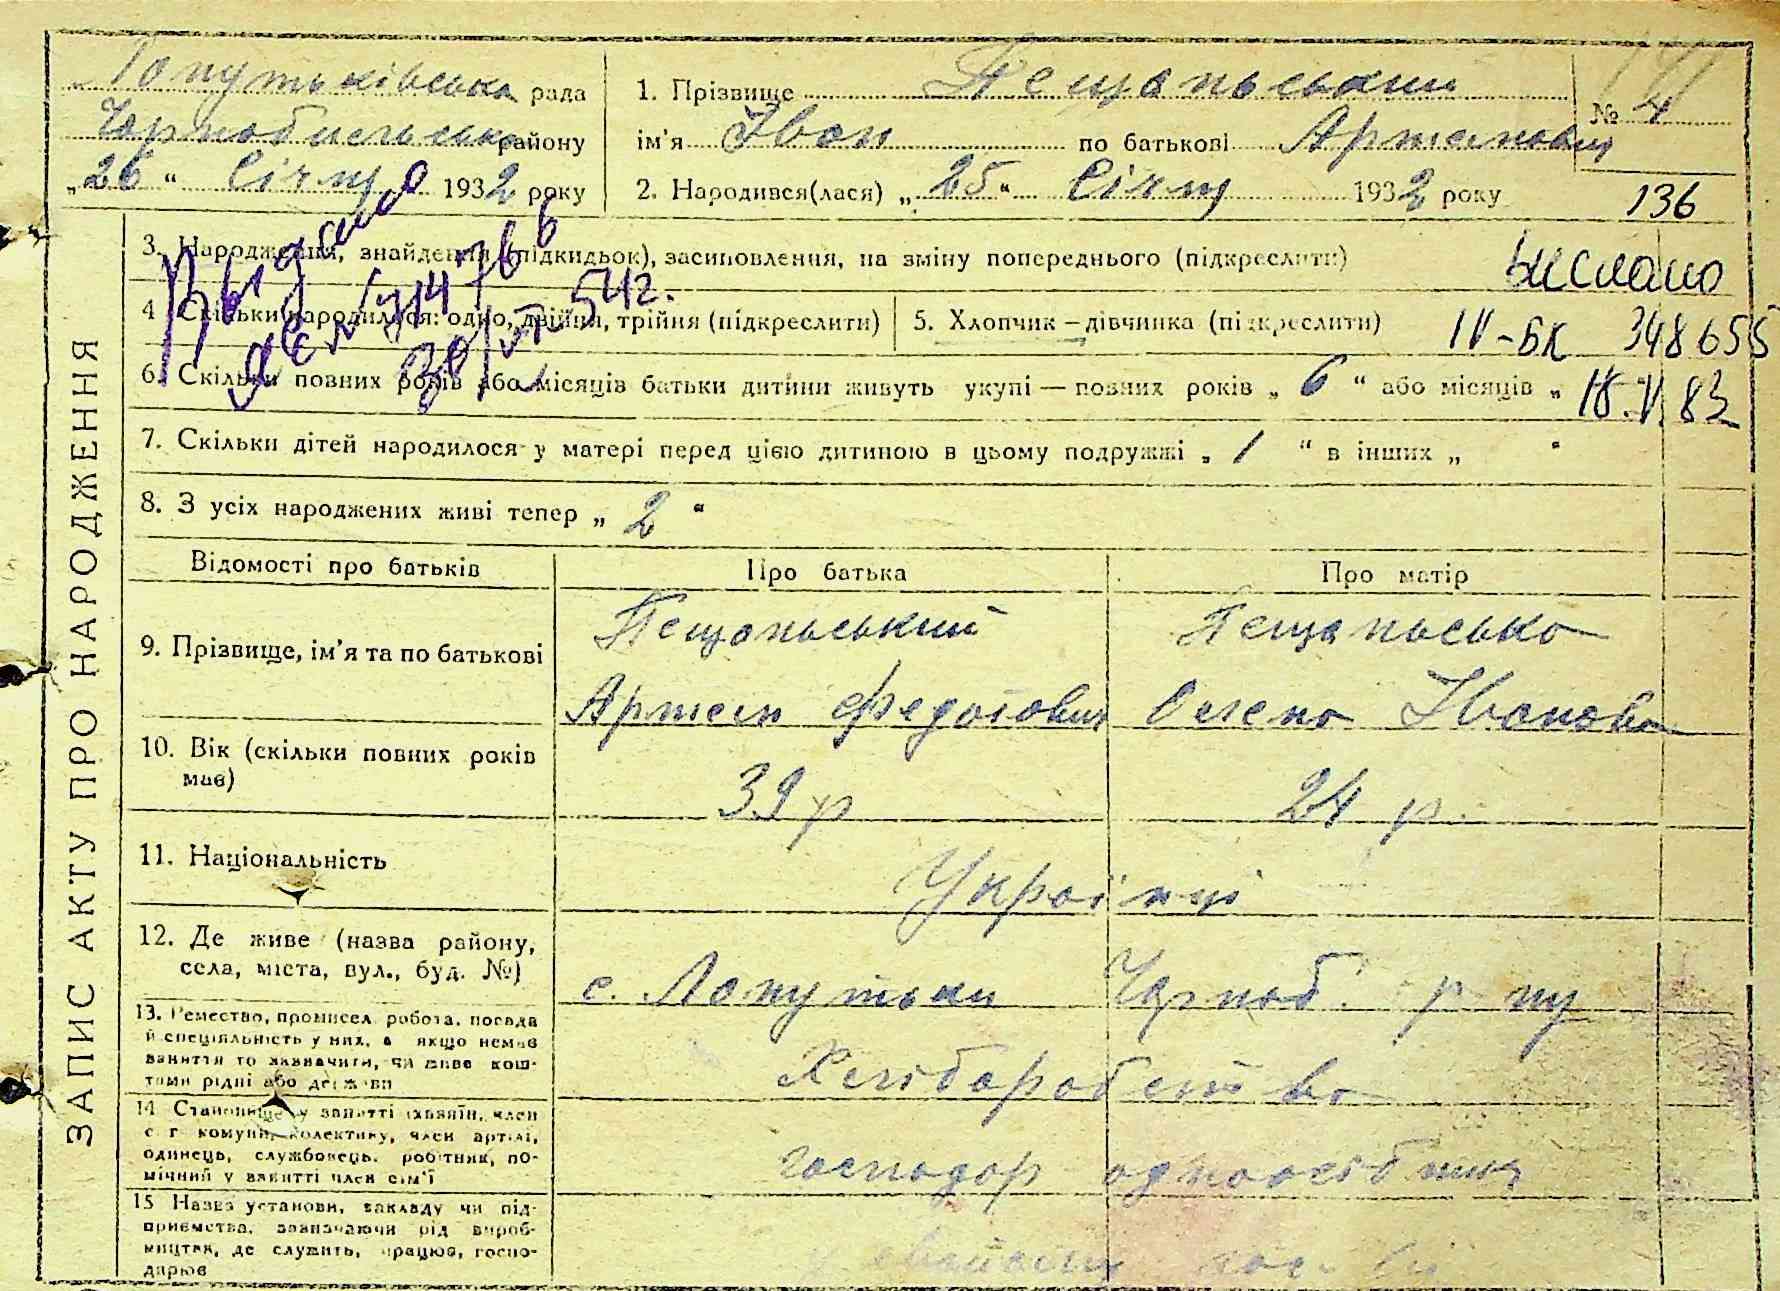 Лопутьківська рада
Чорнобильського району
„26“ Січня 1932 року
1. Прізвище Пещанський
ім'я Іван по батькові Артемович
№ 4
2. Народився(лася) „25“ Січня 1932 року
136
ЗАПИС АКТУ ПРО НАРОДЖЕННЯ
3. Народження, знайдення (підкидьок), засиновлення, на зміну попереднього (підкреслити)
вислано
4 Скільки народилося: одно, двійня, трійня (підкреслити)
5. Хлопчик – дівчинка (підкреслити)
IV-БК 348655
Выдано
54г.
6. Скільки повних років або місяців батьки дитини живуть укупі — повних років „ 6 “ або місяців „
18.V.83
7. Скільки дітей народилося у матері перед цією дитиною в цьому подружжі „ 1 “ в інших „ “
8. З усіх народжених живі тепер „ 2 “
Відомості про батьків Про батька Про матір
9. Прізвище, ім'я та по батькові
Пещанський Пещанська
Артем Федотович Олена Іванова
10. Вік (скільки повних років
має)
39 р 24 р.
11. Національність
Українці
12. Де живе (назва району,
села, міста, вул., буд. №)
с. Лопутьки Чорноб. р-ну
13. Ремество, промисел, робота, посада
й спеціяльність у них, а якщо немає
заняття то зазначити, чи живе кош-
тами рідні або держави
Хліборобство
14 Становище у занятті (хазяїн, член
с. г. комуни, колективу, член артілі,
одинець, службовець, робітник, по-
мічний у занятті член сім'ї
господар одноосібник
15 Назва установи, закладу чи під-
приємства, зазначаючи рід вироб-
ництва, де служить, працює, госпо-
дарює
у своїому гос-ві